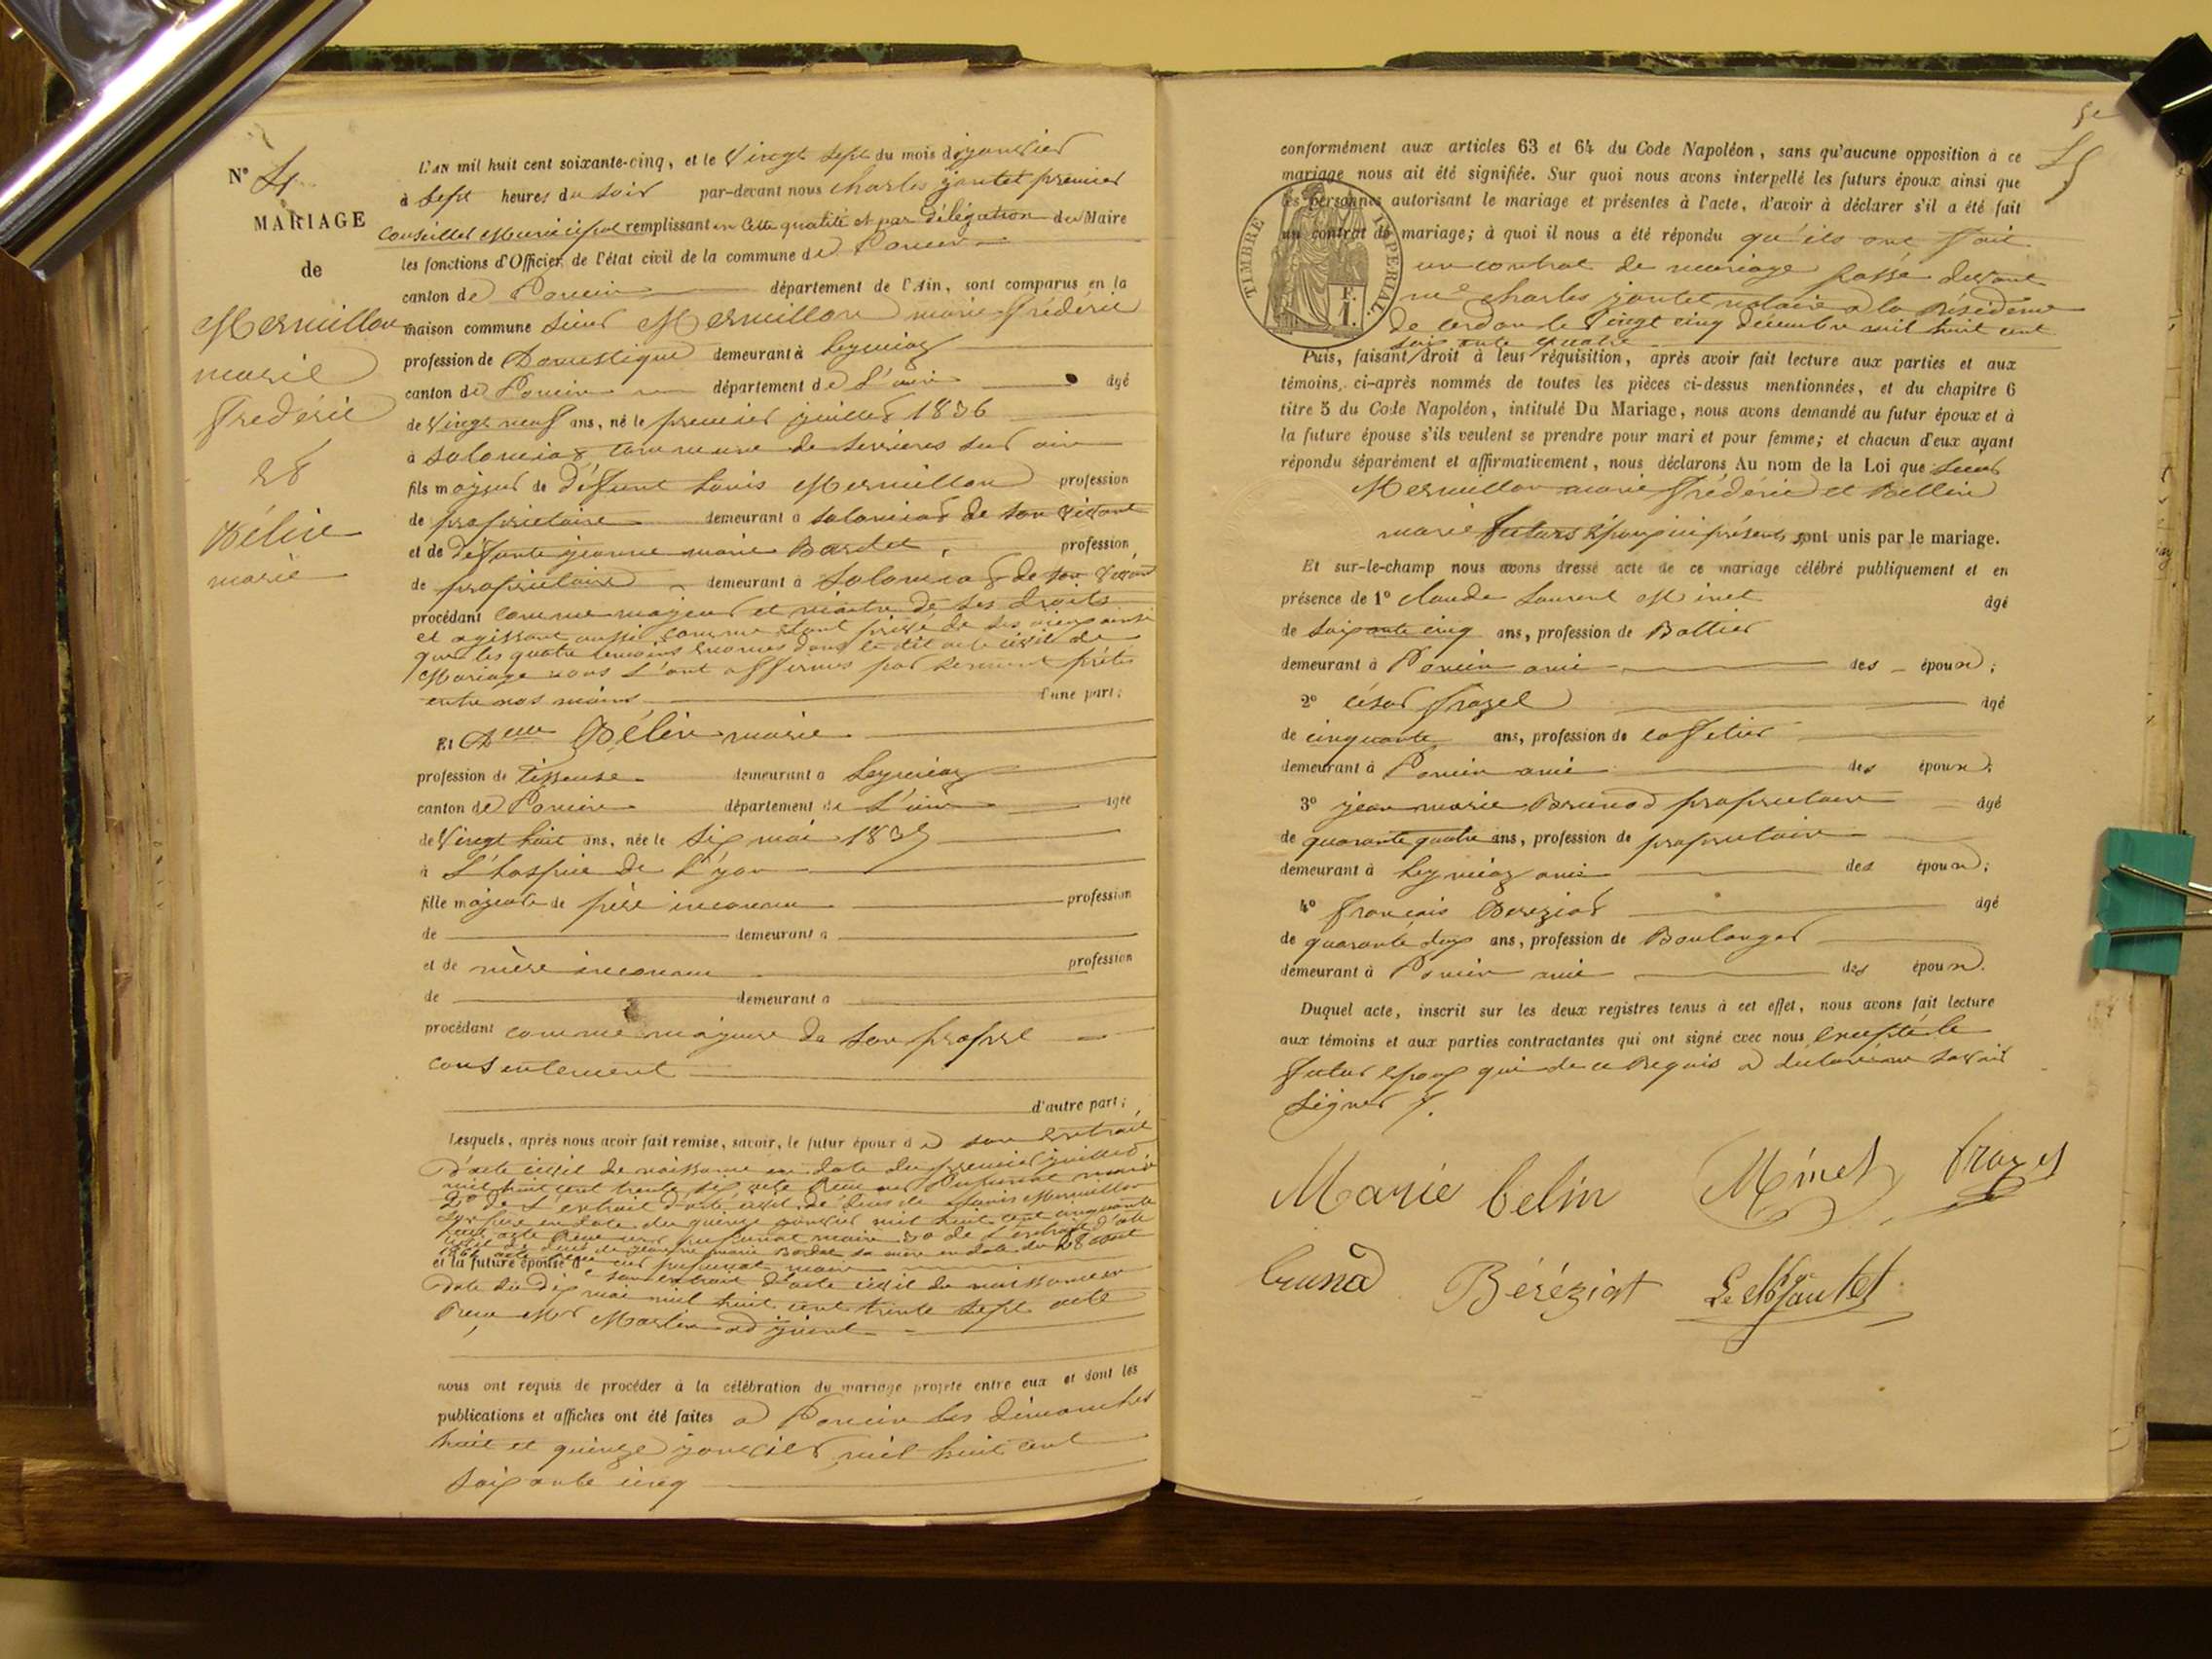 N° 4
MARIAGE
de
Mermillon
marie
frédéric
28
Bélin
marie
L'AN mil huit cent soixante-cinq, et le Vingt sept du mois de janvier
à sept heures du soir par-devant nous charles jantet premier
conseiller Municipal remplissant en cette qualité et par délégation du Maire
les fonctions d'Officier de l'état civil de la commune de Poncin
canton de Poncin département de l'Ain, sont comparus en la
maison commune sieur Mermillon marie frédéric
profession de Domestique demeurant à Leymiaz
canton de Poncin département de L'ain âgé
de Vingt neuf ans, né le premier juillet 1836
à Solomiaz commune de Serrières sur ain
fils majeur de défunt Louis Mermillon profession
de propriétaire demeurant à Solomiaz de son vivant
et de défunte jeanne marie Bardet, profession
de propriétaire demeurant à Solomiaz de son vivant
procédant comme majeur et maitre de ses droits
et agissant aussi comme étant privé de ses aieux ainsi
que les quatre temoins énoncés dans le dit acte civil de
Mariage nous l'ont affirmés par serment prêtés
entre nos mains d'une part;
Et Delle Bélin marie
profession de tisseuse demeurant à Leymiaz
canton de Poncin département de L'ain âgée
de Vingt huit ans, née le six mai 1837
à L'hospice de Lyon
fille majeure de père inconnu profession
de demeurant à
et de mère inconnue profession
de demeurant à
procédant comme majeure de son propre
consentement
d'autre part;
Lesquels, après nous avoir fait remise, savoir, le futur époux de son extrait
d'acte civil de naissance en date du premier juillet
mil huit cent trente six acte reçu marie
2° de L'extrait d'acte civil de décès de Louis Mermillon
son père en date du quinze janvier mil huit cent cinquante
acte reçu maire 3° de L'extrait d'acte
civil de décès de jeanne marie Bardet sa mère en date du 28
1864 acte reçu maire
et la future épouse de son extrait d'acte civil de naissance en
date du dix mai mil huit cent trente sept acte
reçu Mr Martin adjoint
nous ont requis de procéder à la célébration du mariage projeté entre eux et dont les
publications et affiches ont été faites à Poncin les dimanches
huit et quinze janvier mil huit cent
soixante cinq
conformément aux articles 63 et 64 du Code Napoléon, sans qu'aucune opposition à ce
mariage nous ait été signifiée. Sur quoi nous avons interpellé les futurs époux ainsi que
les personnes autorisant le mariage et présentes à l'acte, d'avoir à déclarer s'il a été fait
un contrat de mariage; à quoi il nous a été répondu qu'ils ont fait
un contrat de mariage passé devant
me charles jantet notaire à la résidence
de cerdon le Vingt cinq décembre mil huit cent
soixante quatre
TIMBRE IMPERIAL
F.
1.
Puis, faisant droit à leur réquisition, après avoir fait lecture aux parties et aux
témoins, ci-après nommés de toutes les pièces ci-dessus mentionnées, et du chapitre 6
titre 5 du Code Napoléon, intitulé Du Mariage, nous avons demandé au futur époux et à
la future épouse s'ils veulent se prendre pour mari et pour femme; et chacun d'eux ayant
répondu séparément et affirmativement, nous déclarons Au nom de la Loi que sieur
Mermillon marie frédéric et Bellin
marie futurs époux ici présents sont unis par le mariage.
Et sur-le-champ nous avons dressé acte de ce mariage célébré publiquement et en
présence de 1° claude Laurent Minet âgé
de soixante cinq ans, profession de Battier
demeurant à Poncin ami des époux;
2° césar frazel âgé
de cinquante ans, profession de caffetier
demeurant à Poncin ami des époux;
3° jean marie Brunod propriétaire âgé
de quarante quatre ans, profession de propriétaire
demeurant à Leymiaz ami des époux;
4° françois Bereziat âgé
de quarante deux ans, profession de Boulanger
demeurant à Poncin ami des époux.
Duquel acte, inscrit sur les deux registres tenus à cet effet, nous avons fait lecture
aux témoins et aux parties contractantes qui ont signé avec nous excepté le
futur époux qui de ce requis a déclaré ne savoir
signer
Marie belin Minet frazel
brunod Béréziat Jantet